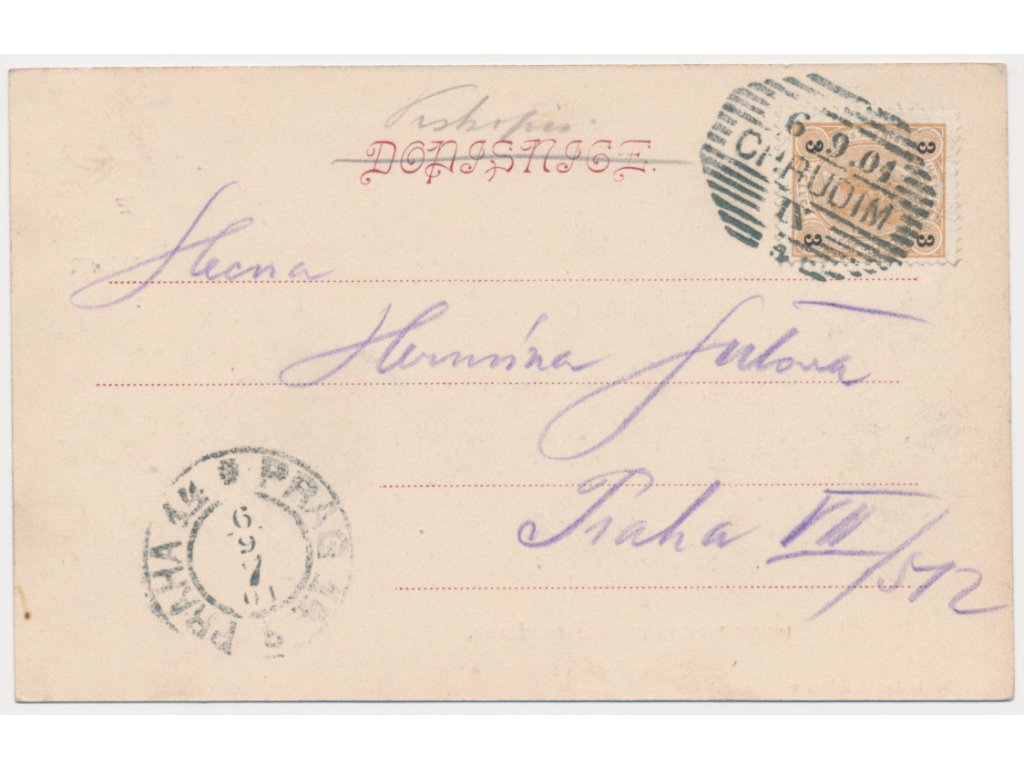 Tiskopis.
DOPISNICE.
6 9.01
CHRUDIM
IX
3 3
3 3
Slecna
Hermína
Praha VII
/512
PRAG
PRAHA
6
9
7
01